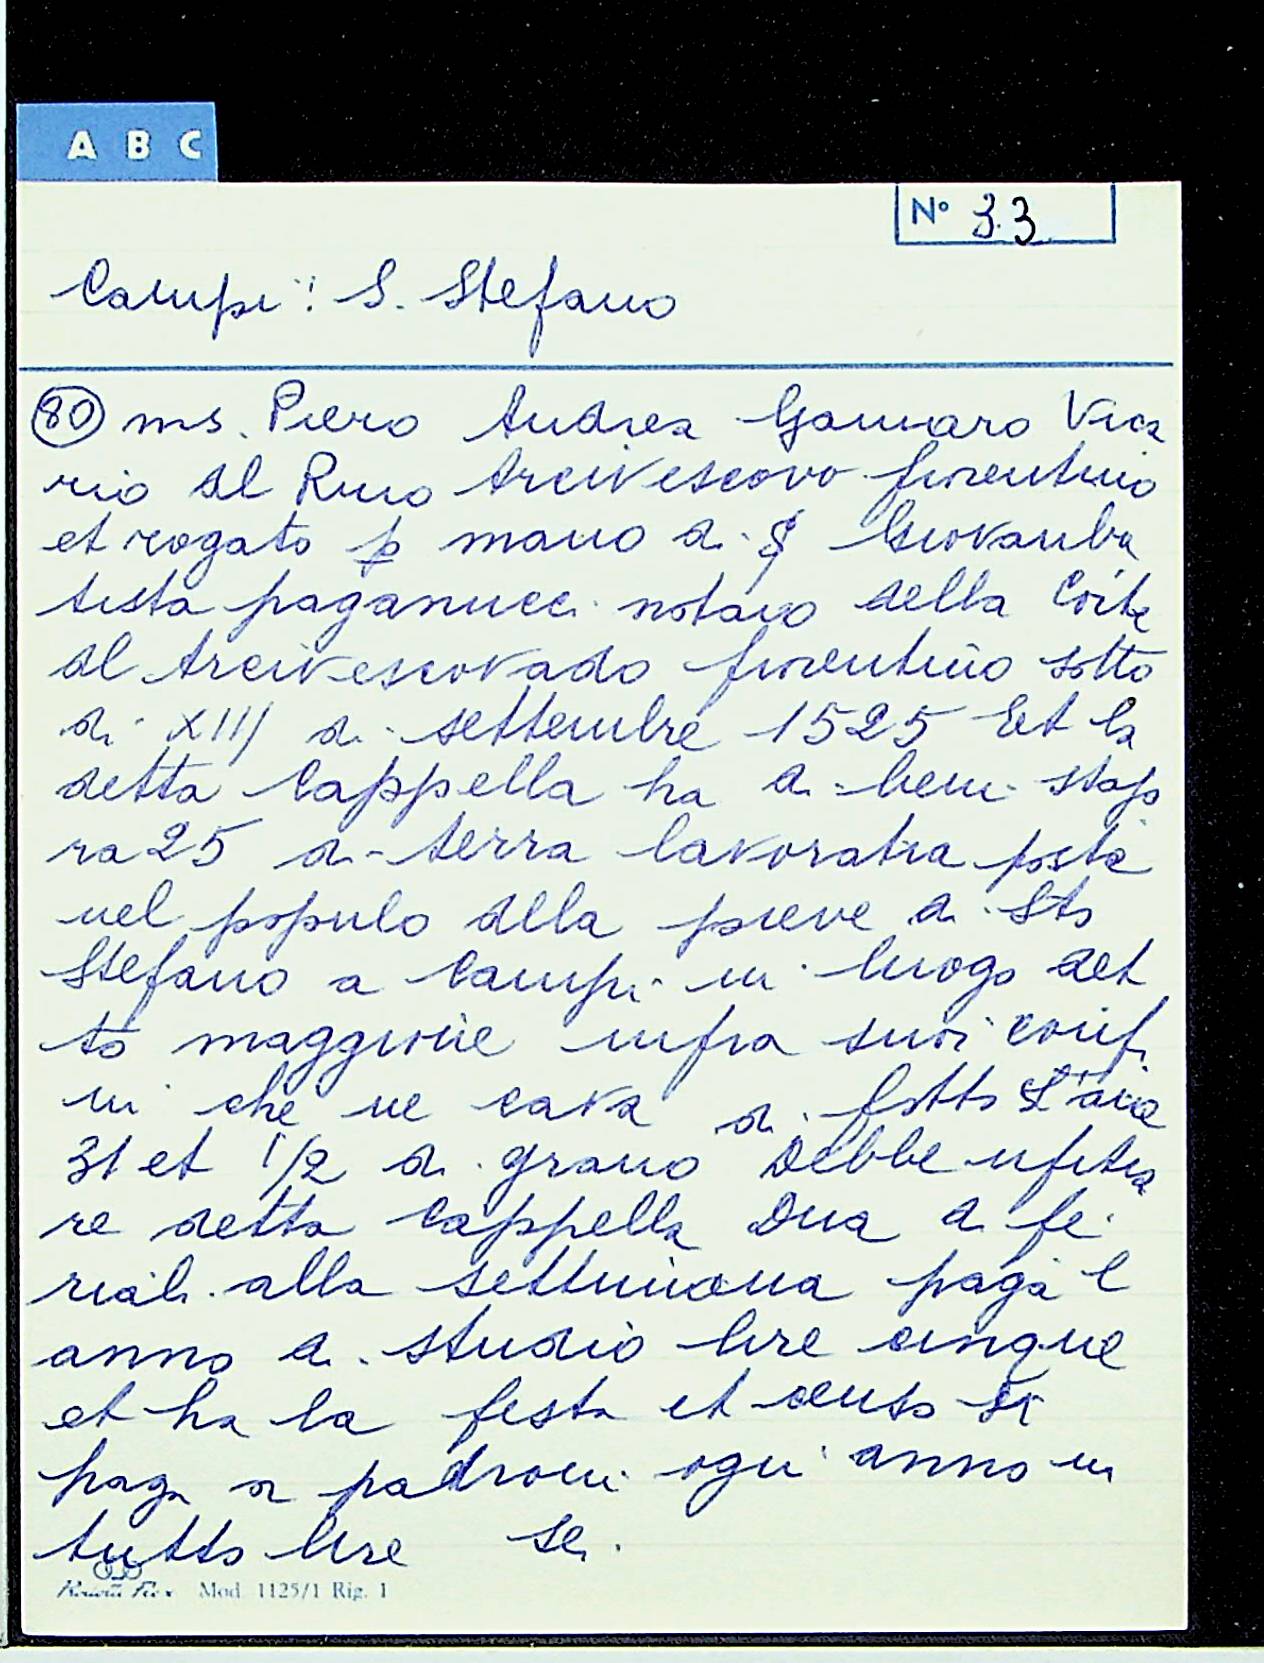 A B C
N° 33
Campi: S. Stefano
80 ms. Piero Andrea Gammaro Vica
rio del Rmo Arcivescovo fiorentino
et rogato p mano di S Giovanba
tista paganucci notaio della Corte
del Arcivescovado fiorentino sotto
di XIII di settembre 1525 Et la
detta Cappella ha di beni stajo
ra 25 di terra lavoratia posta
nel populo della pieve di Sto
Stefano a Campi in luogo det
to maggiorie infra suoi confi
ni che ne cava di fitto
31 et 1/2 di grano Debbe ufitia
re detta Cappella Dua di fe
riali alla settimana paga l
anno a studio lire cinque
et ha la festa et censo si
paga a padroni ogni anno in
tutto lire sei.
Mod. 1125/1 Rig. 1